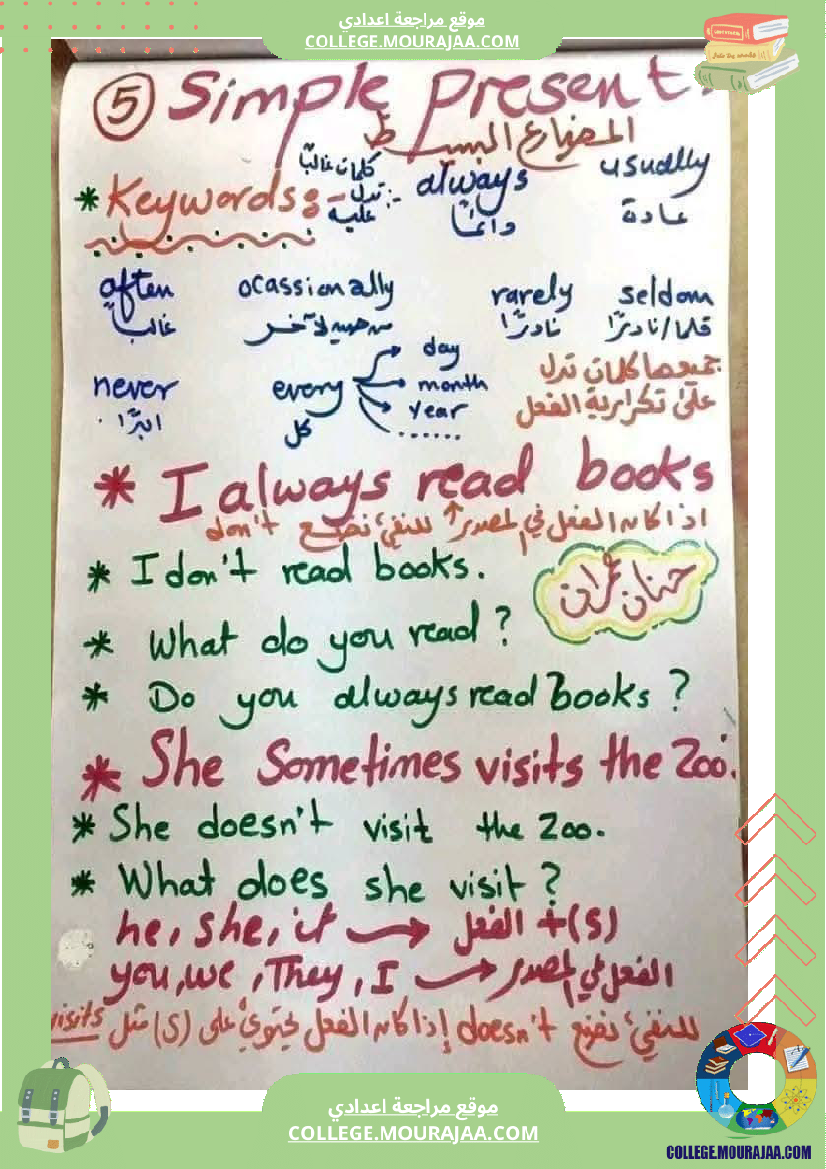 موقع مراجعة اعدادي
COLLEGE.MOURAJAA.COM
5 Simple present.
المضارع البسيط
* Keywords: كلمات غالبًا تدل عليه :- always usually
دائمًا عادة
often ocassionally rarely seldom
غالبًا من حين لآخر نادرًا قلما/نادرًا
never every day month year .......
ابدًا كل
جميعها كلمات تدل
على تكرارية الفعل
* I always read books
اذا كان الفعل في المصدر للنفي نضع don't
* I don't read books.
حنان عمران
* What do you read ?
* Do you always read books ?
* She Sometimes visits the Zoo.
* She doesn't visit the Zoo.
* What does she visit ?
he, she, it → الفعل + (s)
you, we, They, I → الفعل في المصدر
للنفي نضع doesn't إذا كان الفعل يحتوي على (s) مثل visits
موقع مراجعة اعدادي
COLLEGE.MOURAJAA.COM
COLLEGE.MOURAJAA.COM